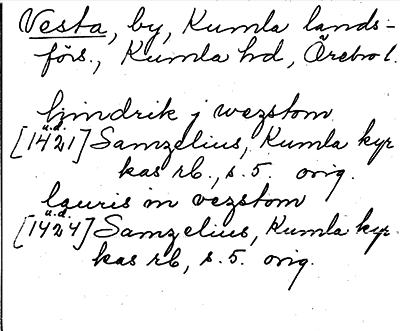 Vesta, by, Kumla lands-
förs., Kumla hd, Örebro l.
hindrik j vezstom
u.d.
[1421] Samzelius, Kumla kyr
kas rb, s. 5. orig.
lauris m vezstom
u.d.
[1424] Samzelius, Kumla kyr
kas rb, s. 5. orig.